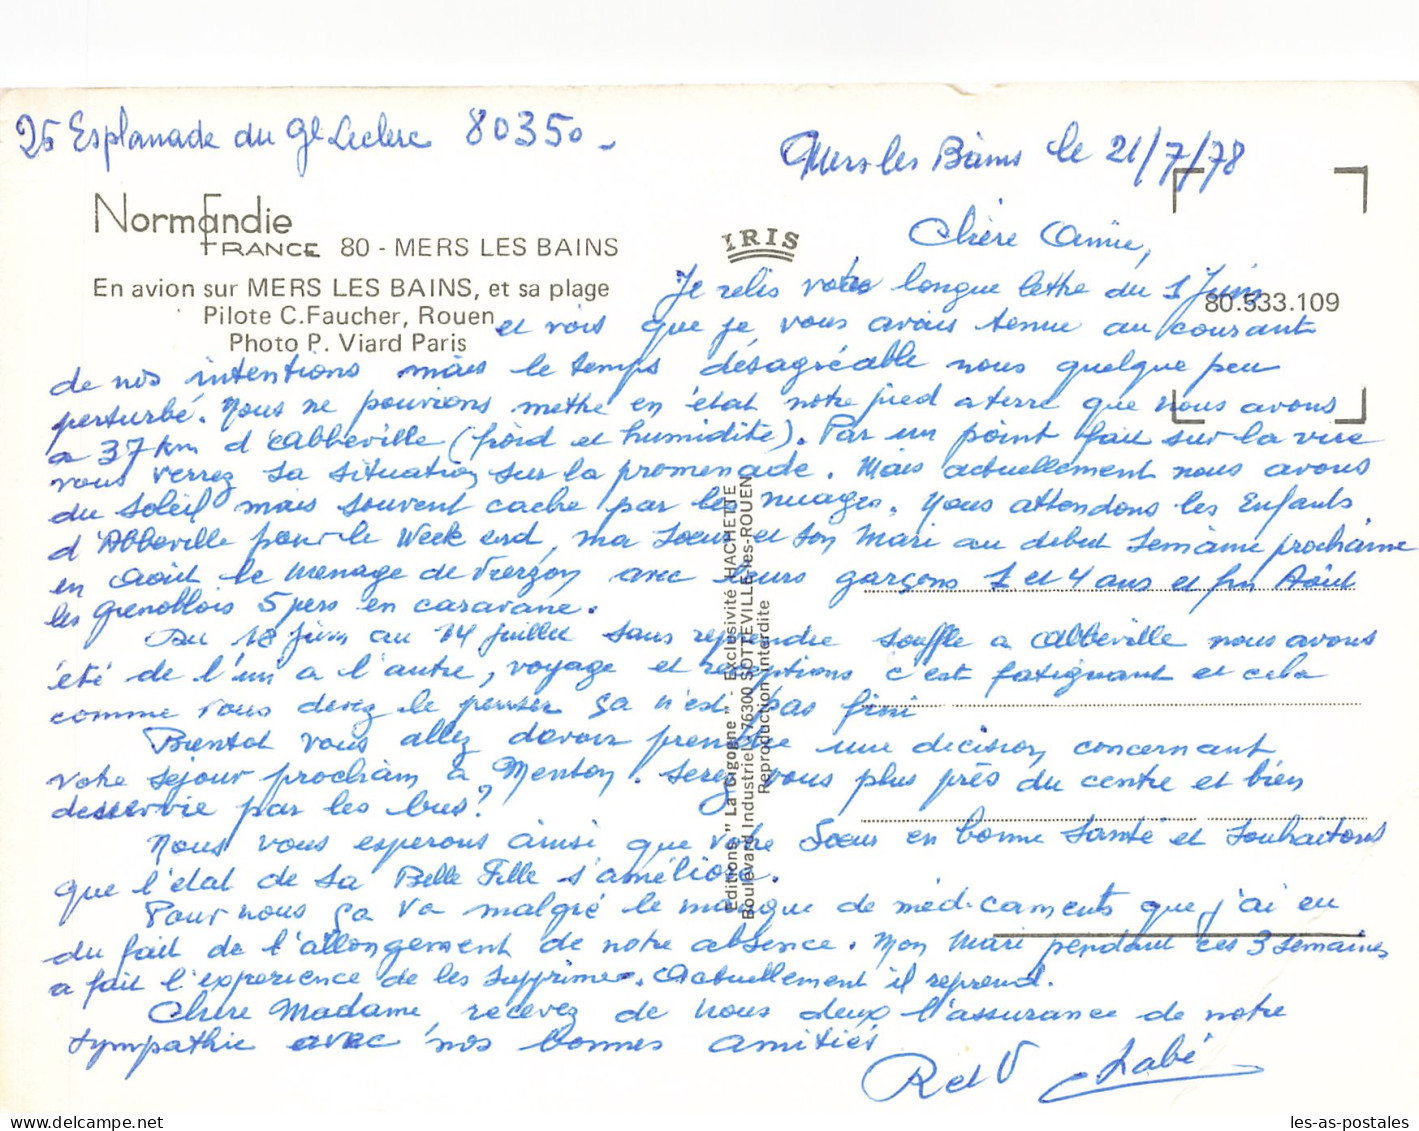 25 Esplanade du Gl Leclerc 80350 -
Mers les Bains le 21/7/78
Normandie
FRANCE 80 - MERS LES BAINS
IRIS
Chère Amie,
En avion sur MERS LES BAINS, et sa plage
Pilote C.Faucher, Rouen
Photo P. Viard Paris
80.533.109
Je relis votre longue lettre du 1 Juin
et vois que je vous avais tenue au courant
de nos intentions mais le temps désagréable nous quelque peu
perturbé. Nous ne pouvions mettre en état notre pied a terre que nous avons
a 37 km d'Abbeville (froid et humidité). Par un point fait sur la vue
vous verrez sa situation sur la promenade. Mais actuellement nous avons
du soleil mais souvent cache par les nuages. Nous attendons les Enfants
d'Abbeville pour le Week end, ma Soeur et son Mari au debut semaine prochaine
en Août le menage de Vierzon avec leurs garçons 1 et 4 ans et fin Août
les Grenoblois 5 pers en caravane.
Du 18 Juin au 14 juillet sans reprendre souffle a Abbeville nous avons
été de l'un a l'autre, voyage et réceptions c'est fatiguant et cela
comme vous devez le penser ça n'est pas fini
Bientot vous allez devoir prendre une decision concernant
votre séjour prochain à Menton. Serez vous plus près du centre et bien
desservie par les bus?
Nous vous esperons ainsi que votre Soeur en bonne santé et souhaitons
que l'état de sa Belle Fille s'améliore.
Pour nous ça va malgré le manque de médicaments que j'ai eu
du fait de l'allongement de notre absence. Mon Mari pendant ces 3 semaines
a fait l'experience de les supprimer. Actuellement il reprend.
Chère Madame, recevez de nous deux l'assurance de notre
sympathie avec nos bonnes amitiés
R et V Labé
Editions "La Cigogne" - Exclusivité HACHETTE
Boulevard Industriel 76300 SOTTEVILLE-les-ROUEN
Reproduction interdite
les-as-postales